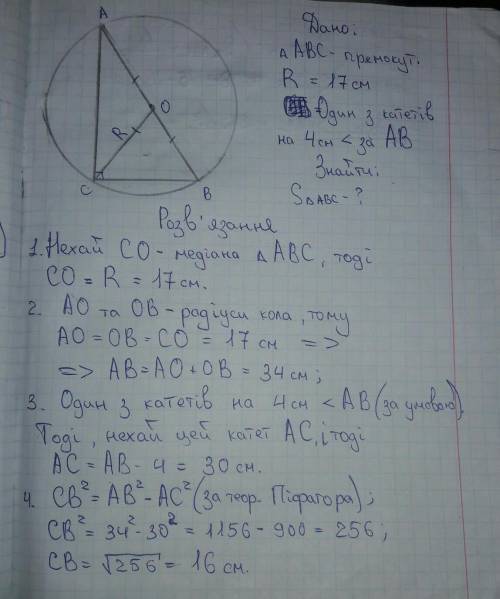 A
O
R
C
B
Дано:
△ABC - прямокут.
R = 17 см
Один з катетів
на 4 см < за AB
Знайти:
S△ABC - ?
Розв'язання
1. Нехай CO - медіана △ABC, тоді
CO = R = 17 см.
2. AO та OB - радіуси кола, тому
AO = OB = CO = 17 см =>
=> AB = AO + OB = 34 см;
3. Один з катетів на 4 см < AB (за умовою).
Тоді, нехай цей катет AC, і тоді
AC = AB - 4 = 30 см.
4. CB² = AB² - AC² (за теор. Піфагора);
CB² = 34² - 30² = 1156 - 900 = 256;
CB = √256 = 16 см.